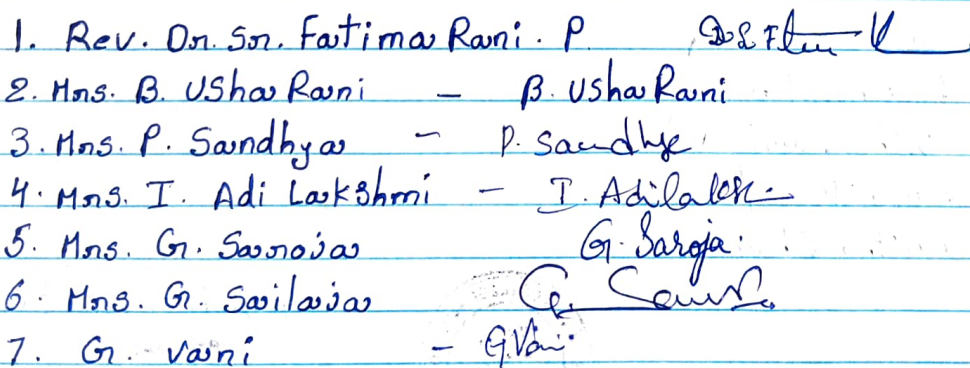 1. Rev. Dr. Sr. Fatima Rani. P
2. Mrs. B. USha Rani - B. Usha Rani
3. Mrs. P. Sandhya - P. Sandhya
4. Mrs. I. Adi Lakshmi - I. Adilaksh
5. Mrs. G. Saroja G. Saroja
6. Mrs. G. Sailaja G.
7. G. Vani - G. Vani